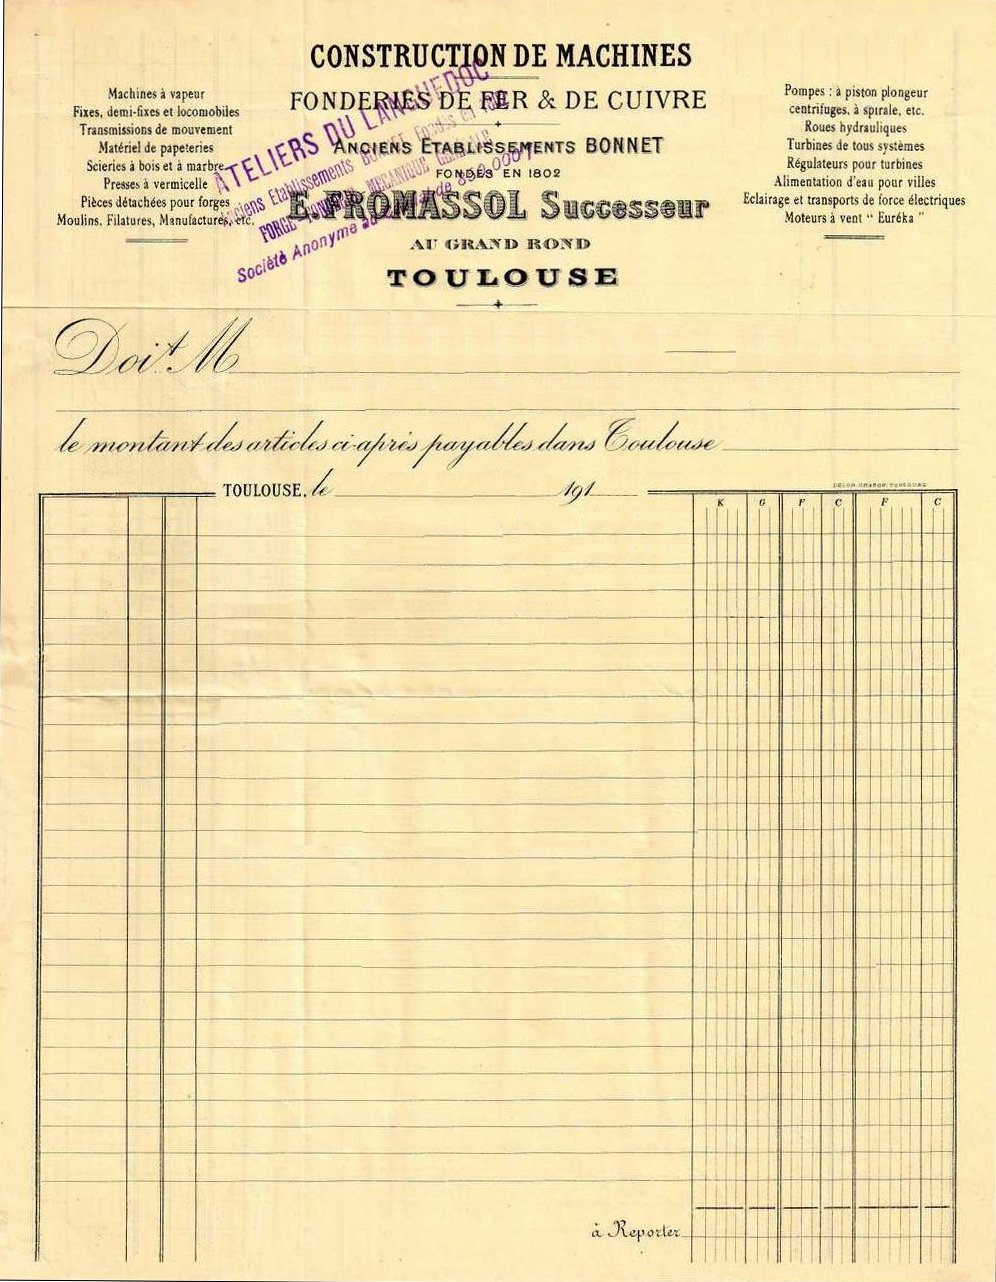 CONSTRUCTION DE MACHINES
FONDERIES DE FER & DE CUIVRE
ANCIENS ETABLISSEMENTS BONNET
FONDÉS EN 1802
E. FROMASSOL Successeur
AU GRAND ROND
TOULOUSE
Machines à vapeur
Fixes, demi-fixes et locomobiles
Transmissions de mouvement
Matériel de papeteries
Scieries à bois et à marbre
Presses à vermicelle
Pièces détachées pour forges
Moulins, Filatures, Manufactures, etc.
Pompes : à piston plongeur
centrifuges, à spirale, etc.
Roues hydrauliques
Turbines de tous systèmes
Régulateurs pour turbines
Alimentation d'eau pour villes
Eclairage et transports de force électriques
Moteurs à vent " Euréka "
ATELIERS DU LANGUEDOC
Anciens Etablissements BONNET Fondés en
FORGE MÉCANIQUE
Société Anonyme de
Doit M
le montant des articles ci-après payables dans Toulouse
TOULOUSE, le 191
K G F C F C
à Reporter